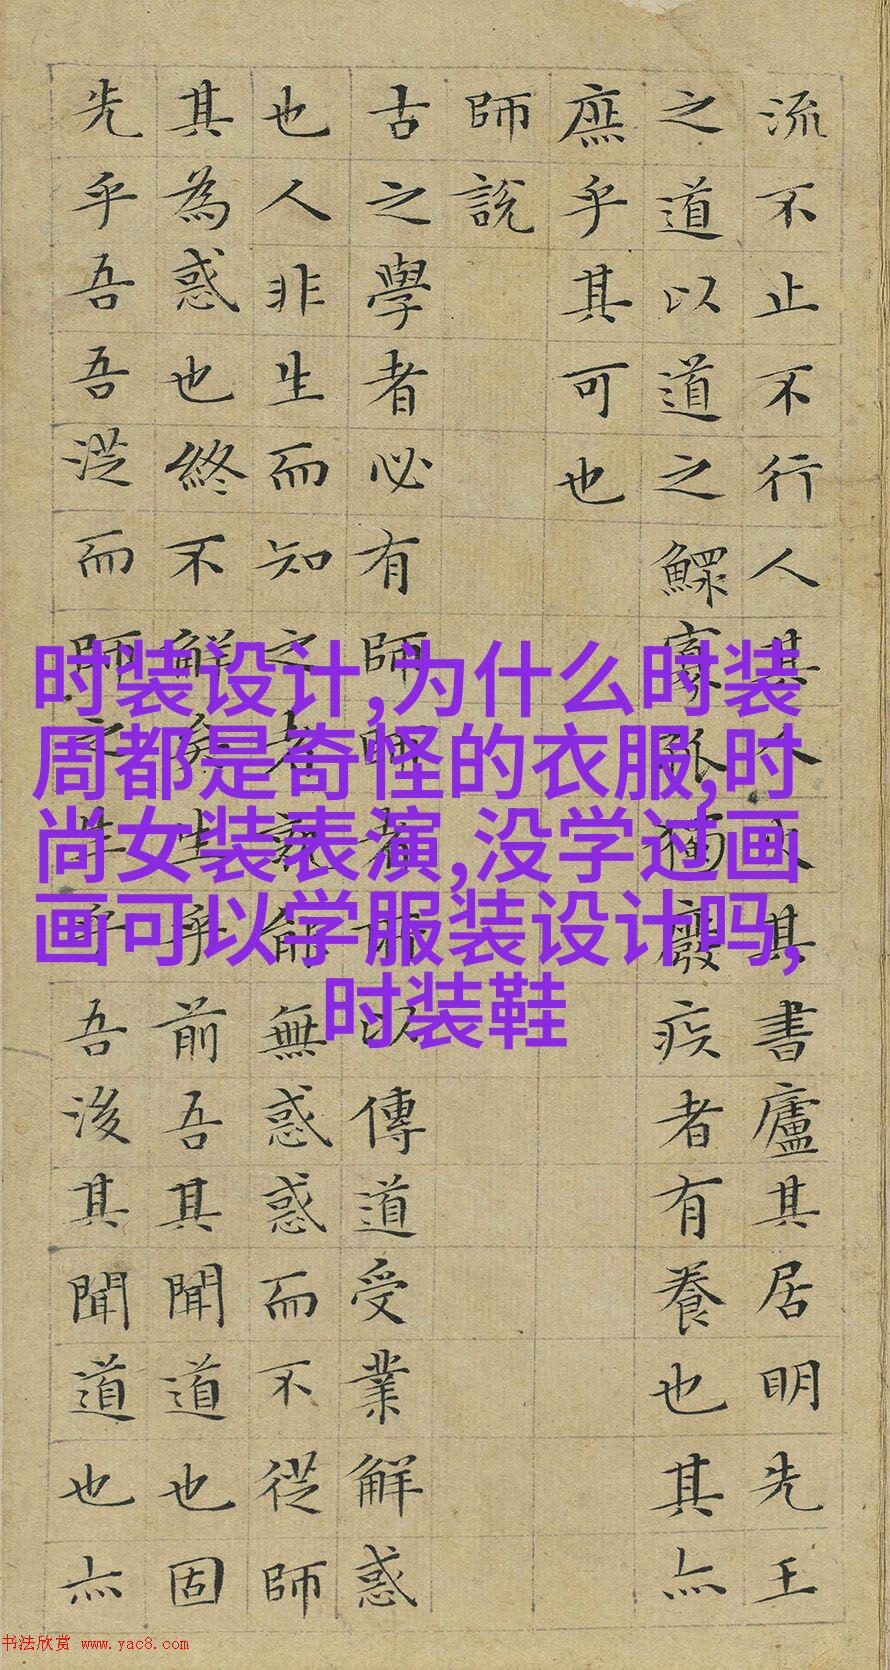 流不止不行人其人火其書廬其居明先王
之道以道之鰥寡孤獨廢疾者有養也其亦
庶乎其可也
師說
古之學者必有師師者所以傳道受業解惑
也人非生而知之者孰能無惑惑而不從師
其為惑也終不解矣生乎前吾其聞道也固
先乎吾吾從而師之生乎吾後其聞道也亦
时装设计,为什么时装
周都是奇怪的衣服,时
尚女装表演,没学过画
画可以学服装设计吗,
时装鞋
书法欣赏 www.yac8.com